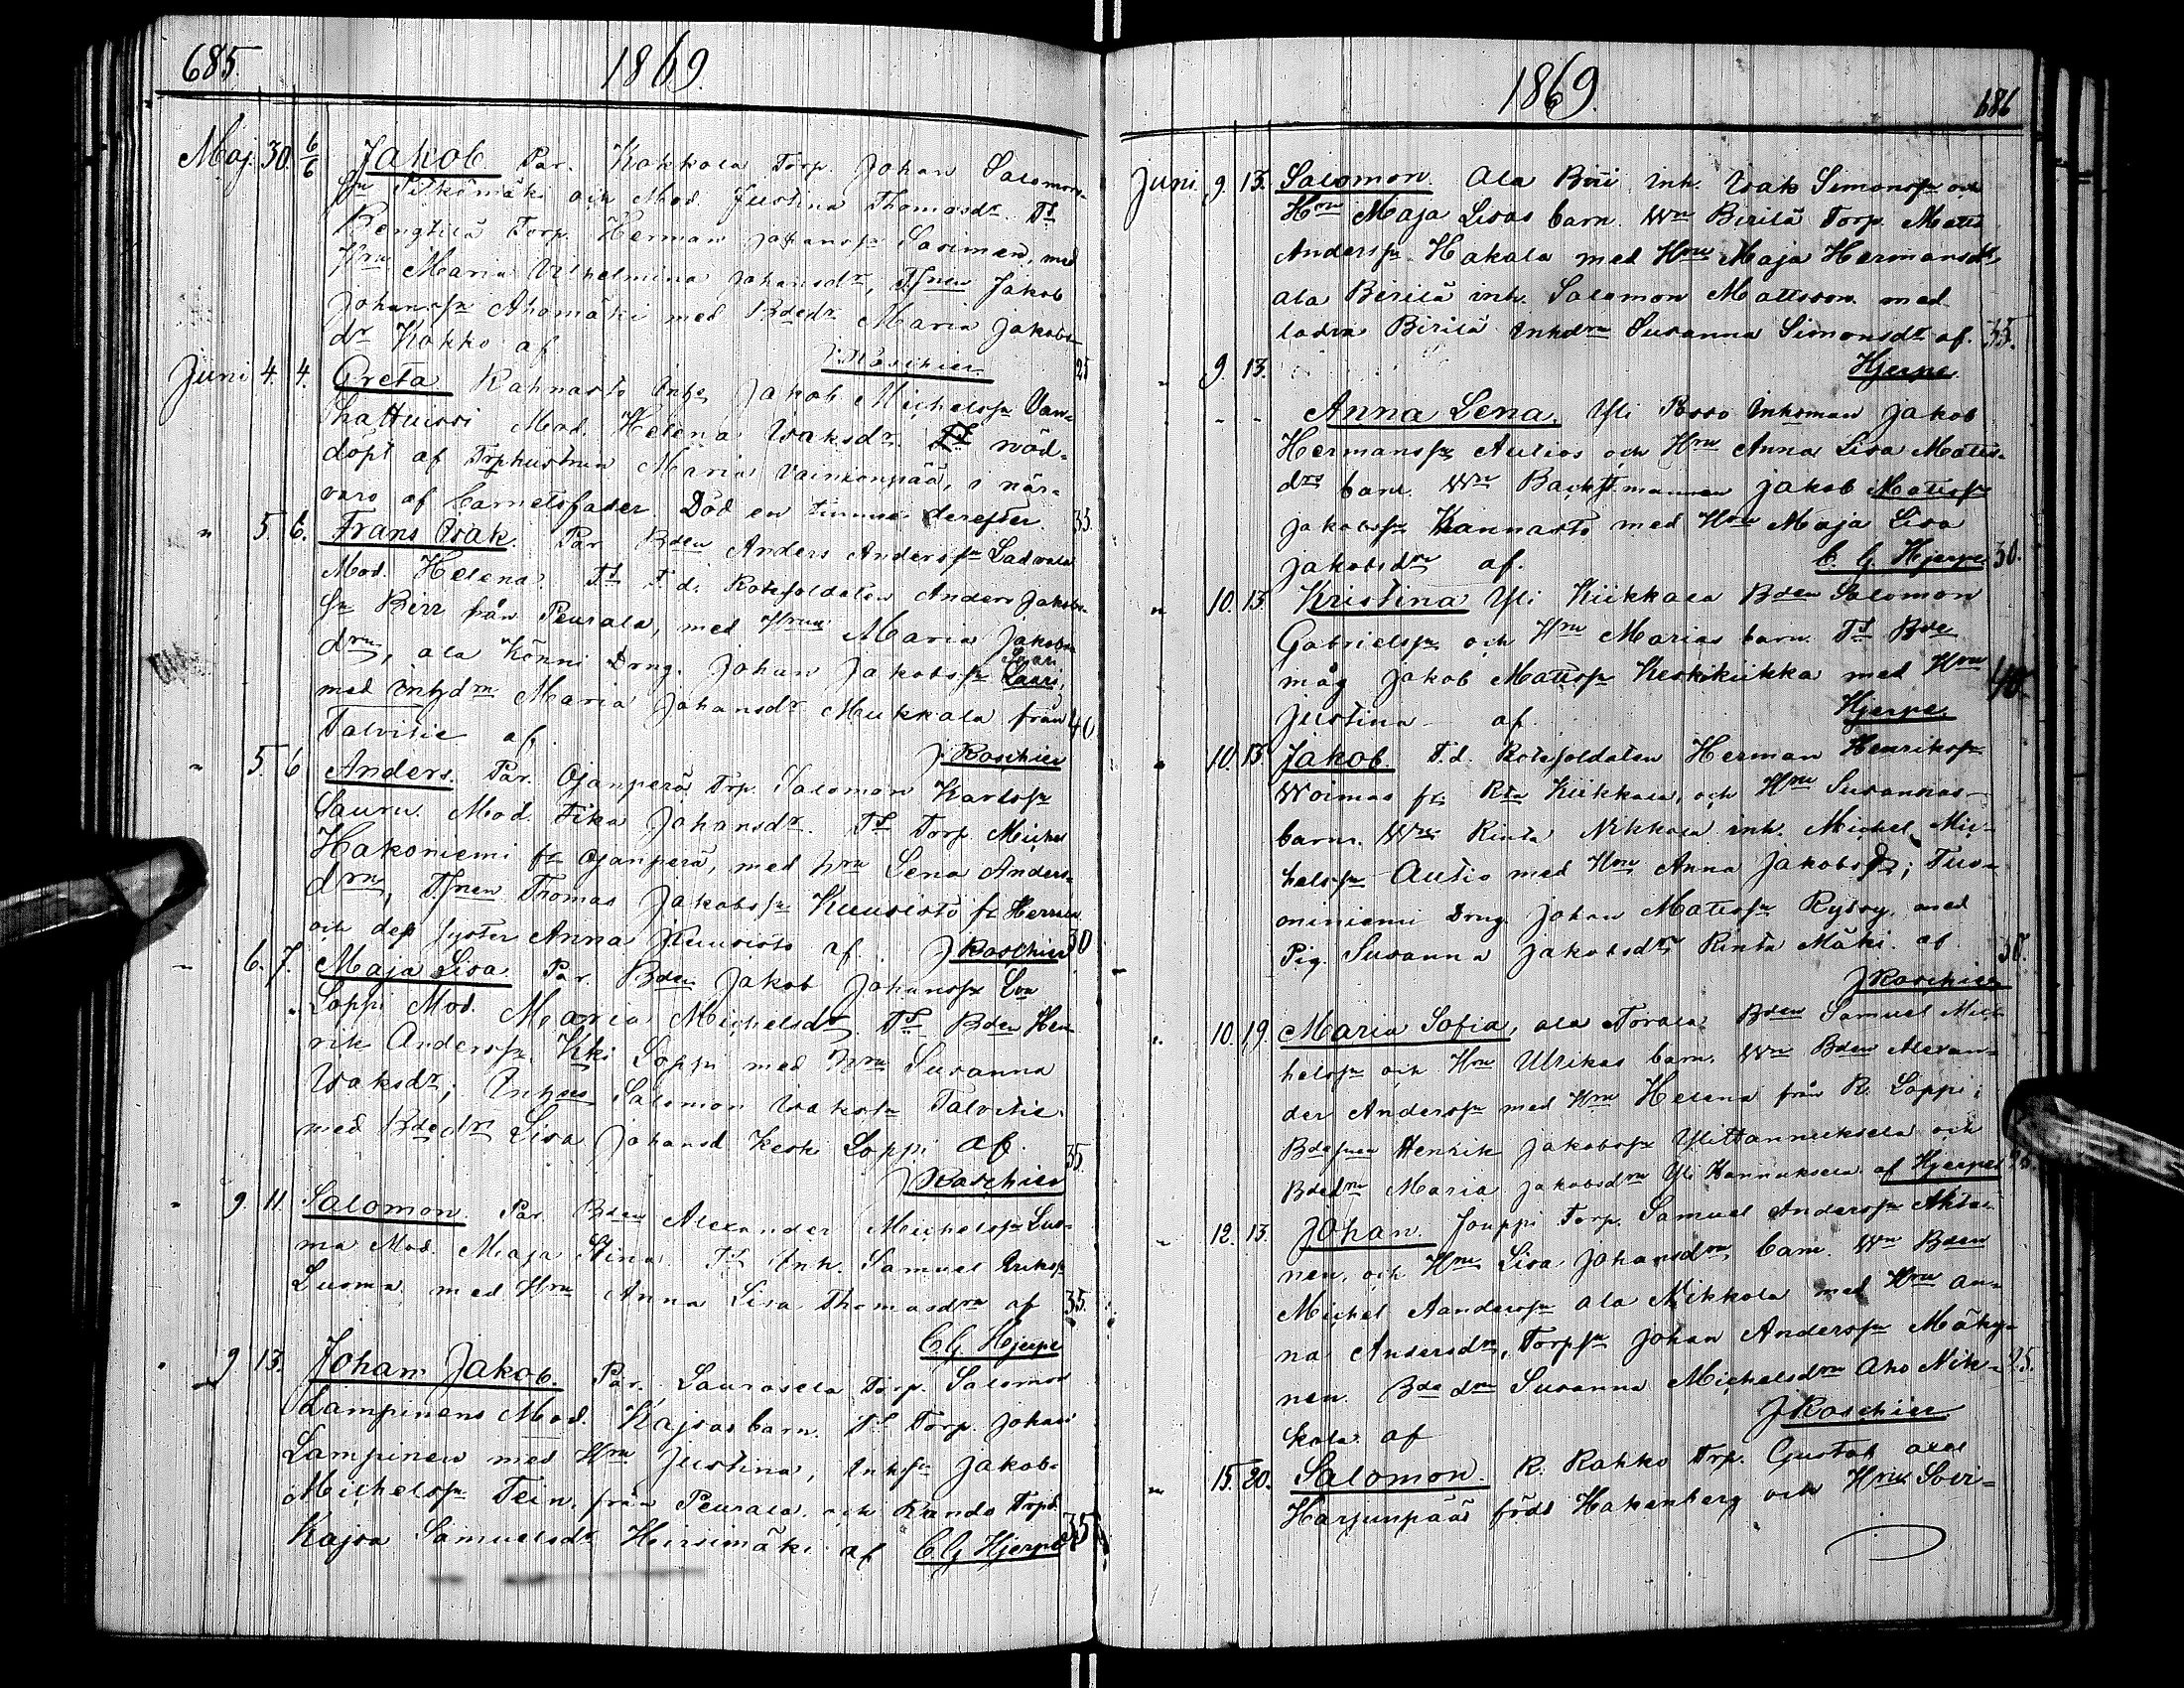 685. 1869.
Maj. 30. 6/6 Jakob Par. Kokkola Torp. Johan Salomons-
sn Pitkämäki och Mod. Justina Thomasdr. Tt
Bengtilä Torp. Herman Johanssn Sarimen, med
Hru Maria Vilhelmina Johansdr, Tsnen Jakob
Johanssn Ahomäki med Bdedr Maria Jakobs-
dr Kokko af J Roschier 25
Juni 4. 4. Greta Kahnasto Inhs Jakob Michelssn Van-
hattuissi Mod. Helena Isaksdr. Tt nöd-
döpt af Trphustrun Maria Vainionpää, i när-
varo af barnets fader. Död en timme derefter. 35.
" 5. 6. Frans Isak. Par Bden Anders Anderssn Ladvala
Mod. Helena. Tt F. d. Rotesoldaten Anders Jakobs-
sn Birr från Peurala, med Hrun Maria Jakobs-
drn, ala Könni Dräng. Johan Jakobssn Saari
med Inhdrn Maria Johansdr Mukkala från 40
Talvitie af J Roschier
" 5. 6 Anders. Par. Ojanperä Trp. Salomon Karlssn
Sauru. Mod. Fika Johansdr. Tt Torp Michel
Hakoniemi fr Ojanperä, med hru Lena Anders-
drn, Tsnen Thomas Jakobssn Kuusisto fr Herrala
och dess syster Anna Kuusisto af. J Roschier 30
" 6. 7. Maja Lisa. Par. Bden Jakob Johanssn Lva
Loppi Mod. Maria Michelsdr. Tt Bden Hen-
rik Anderssn Kki Loppi med Hru Susanna
Isaksdr; Inhses Salomon Isakssn Talvitie
med Bdedrn Lisa Johansd. Keski Loppi af. 35
J Roschier
" 9. 11. Salomon. Par. Bden Alexander Michelssn Luo-
ma Mod. Maja Stina Tt Inh. Samuel Erikssn
Luoma med Hru Anna Lisa Thomasdrn af 35.
C. G. Hjerpe
" 9 13. Johan Jakob. Par. Laurosela Torp. Salomon
Lampinens Mod. Kajsas barn. Tt Torp. Johan
Lampinen med Hru Justina, Inhsn Jakob
Michelssn Tein, från Peurala och Rando Trpd.
Kajsa Samuelsdr Hirsimäki af C G Hjerpe 35
1869. 686
Juni 9. 13. Salomon. Ala Biri inh. Isak Simonssn och
Hru Maja Lisas barn. Wn Birilä Torp. Matts
Anderssn Hakala med Hru Maja Hermansdr,
ala Birilä inh. Salomon Mattsson med
ladva Birilä Inhdrn Susanna Simonsdr af. 35.
" 9. 13. Hjerpe.
" " Anna Lena. Yli Posso Inhsman Jakob
Hermanssn Autios och Hru Anna Lisa Matts-
drs barn. Wn Backst.mannen Jakob Mattssn
Jakobssn Kannasto med Hru Maja Lisa
Jakobsdrn af. C. G. Hjerpe 30.
" 10. 13. Kristina Yli Kiikkala Bden Salomon
Gabrielssn och Hru Marias barn. Tt Bde
måg Jakob Mattssn Keskikiikka med Hru 40.
Justina af. Hjerpe.
" 10. 13. Jakob. F.d. Rotesoldaten Herman Henrikssn
Woimas fr Rta Kiikkala, och Hru Susannas
barn. Wn Rinta Nikkola inh. Michel Mic-
helssn Autio med Hru Anna Jakobsdr; Tuo-
miniemi Dräng. Johan Mattssn Rybsy. med
Pig. Susanna Jakobsdr Rinta Mäki af 30.
J Roschier
" 10. 19. Maria Sofia, ala Torala Bden Samuel Mic-
helssn och Hru Ulrikas barn. Wn Bden Alexan-
der Anderssn med Hru Helena från R. Loppi;
Bdesnen Henrik Jakobssn Yli Hannuksela och
Bdedrn Maria Jakobsdrn Yli Hannuksela af Hjerpe
" 12. 13. Johan. Jouppi Torp. Samuel Anderssn Aktai-
nen, och Hru Lisa Johansdrn barn. Wn Bden
Michel Anderssn ala Nikkola med Hru An-
na Andersdr, Torpsn Johan Anderssn Mäky-
nen. Bdedrn Susanna Michelsdrn Aho Nik- 25.
kola af J Roschier
" 15. 20. Salomon. R. Rahko Trp. Gustaf Axel
Harjunpääs född Hakenberg och Hrus Sovi-